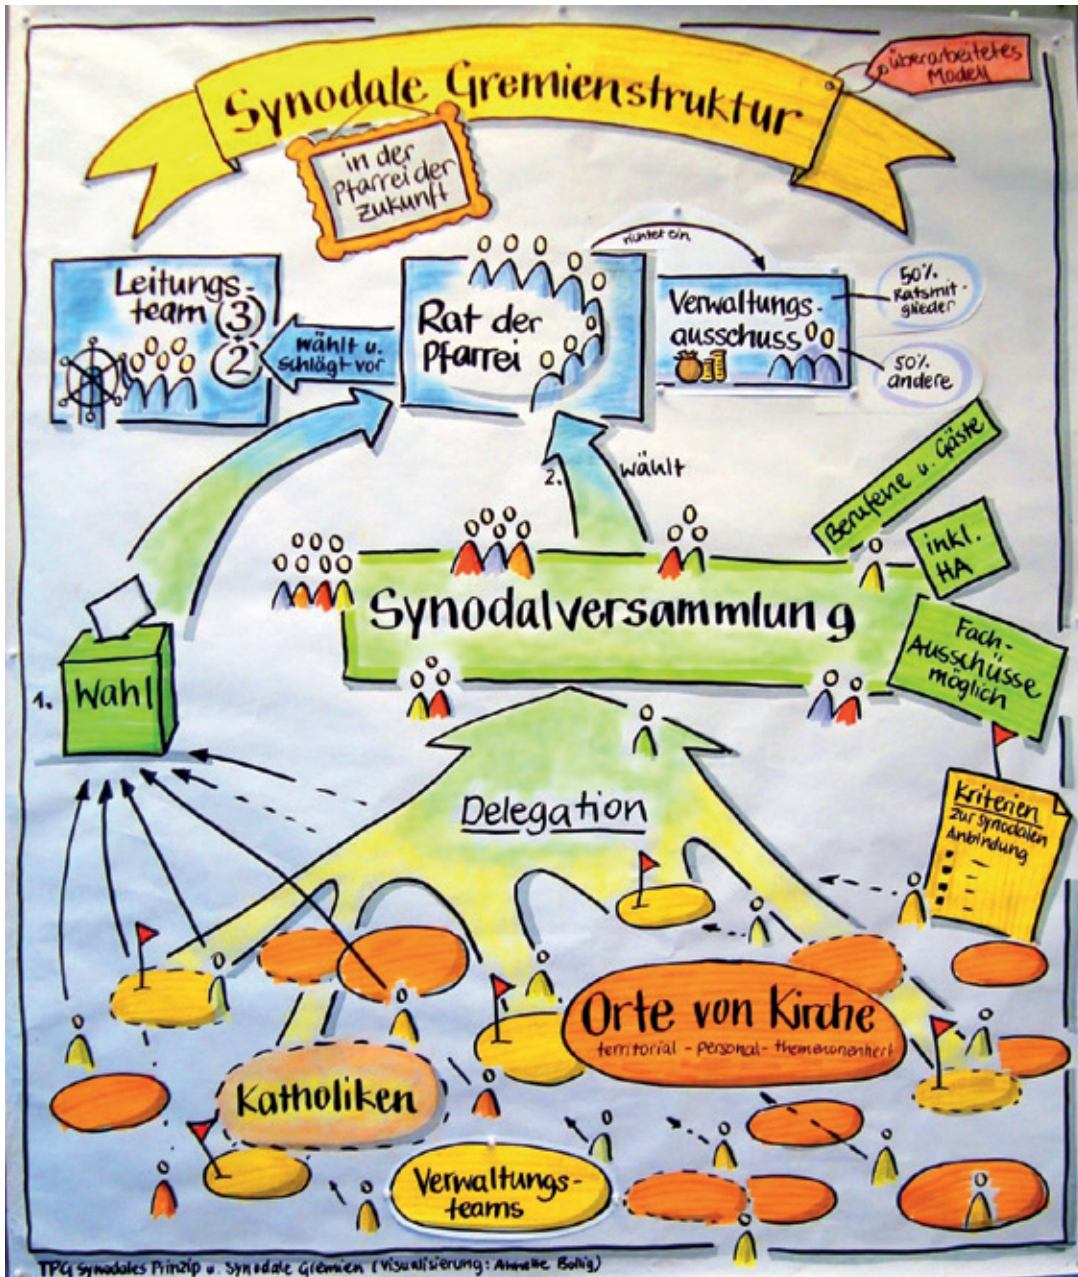 Synodale Gremienstruktur
überarbeitetes
Modell
in der
Pfarrei der
Zukunft
Leitungs-
team (3)
+
(2)
wählt u.
schlägt vor
Rat der
Pfarrei
richtet ein
Verwaltungs-
ausschuss
50%
Ratsmit-
glieder
50%
andere
2.
wählt
Berufene u. Gäste
inkl.
HA
Synodalversammlung
Fach-
Ausschüsse
möglich
1.
Wahl
Delegation
Kriterien
zur synodalen
Anbindung
Orte von Kirche
territorial - personal - themenorientiert
Katholiken
Verwaltungs-
teams
TPG Synodales Prinzip u. Synodale Gremien (Visualisierung: Bollig)